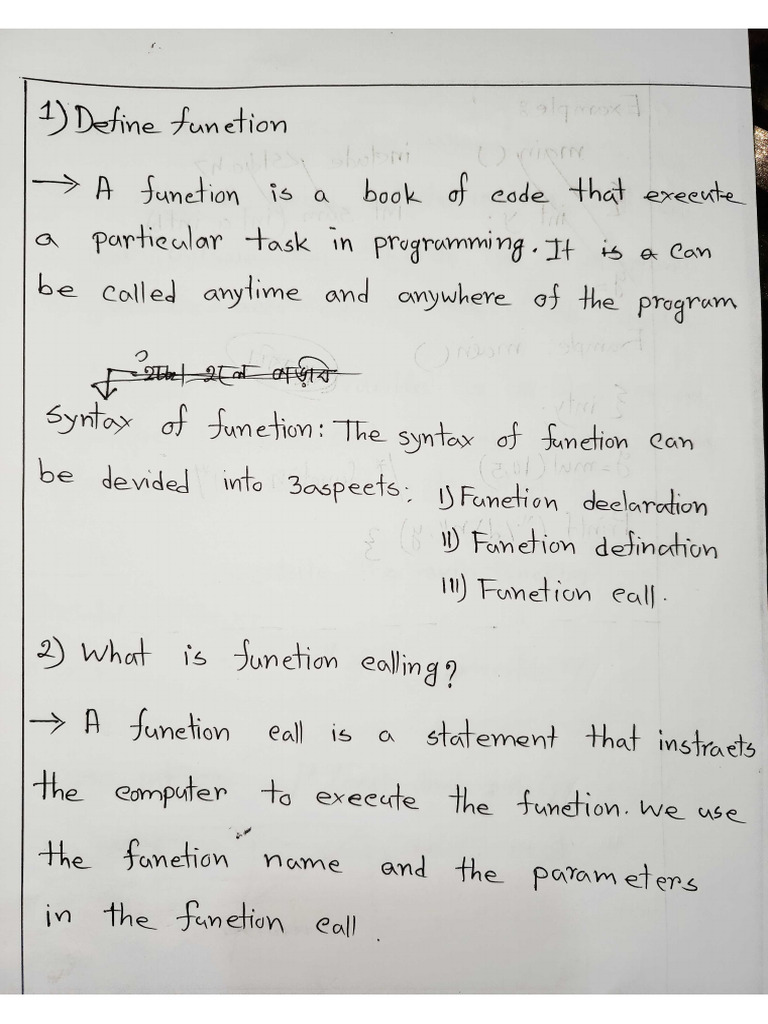 1) Define function
→ A function is a book of code that execute
a particular task in programming. It is a can
be called anytime and anywhere of the program
Syntax of function: The syntax of function can
be devided into 3 aspects: I) Function declaration
II) Function defination
III) Function call.
2) What is function calling?
→ A function call is a statement that instracts
the computer to execute the function. We use
the function name and the parameters
in the function call.